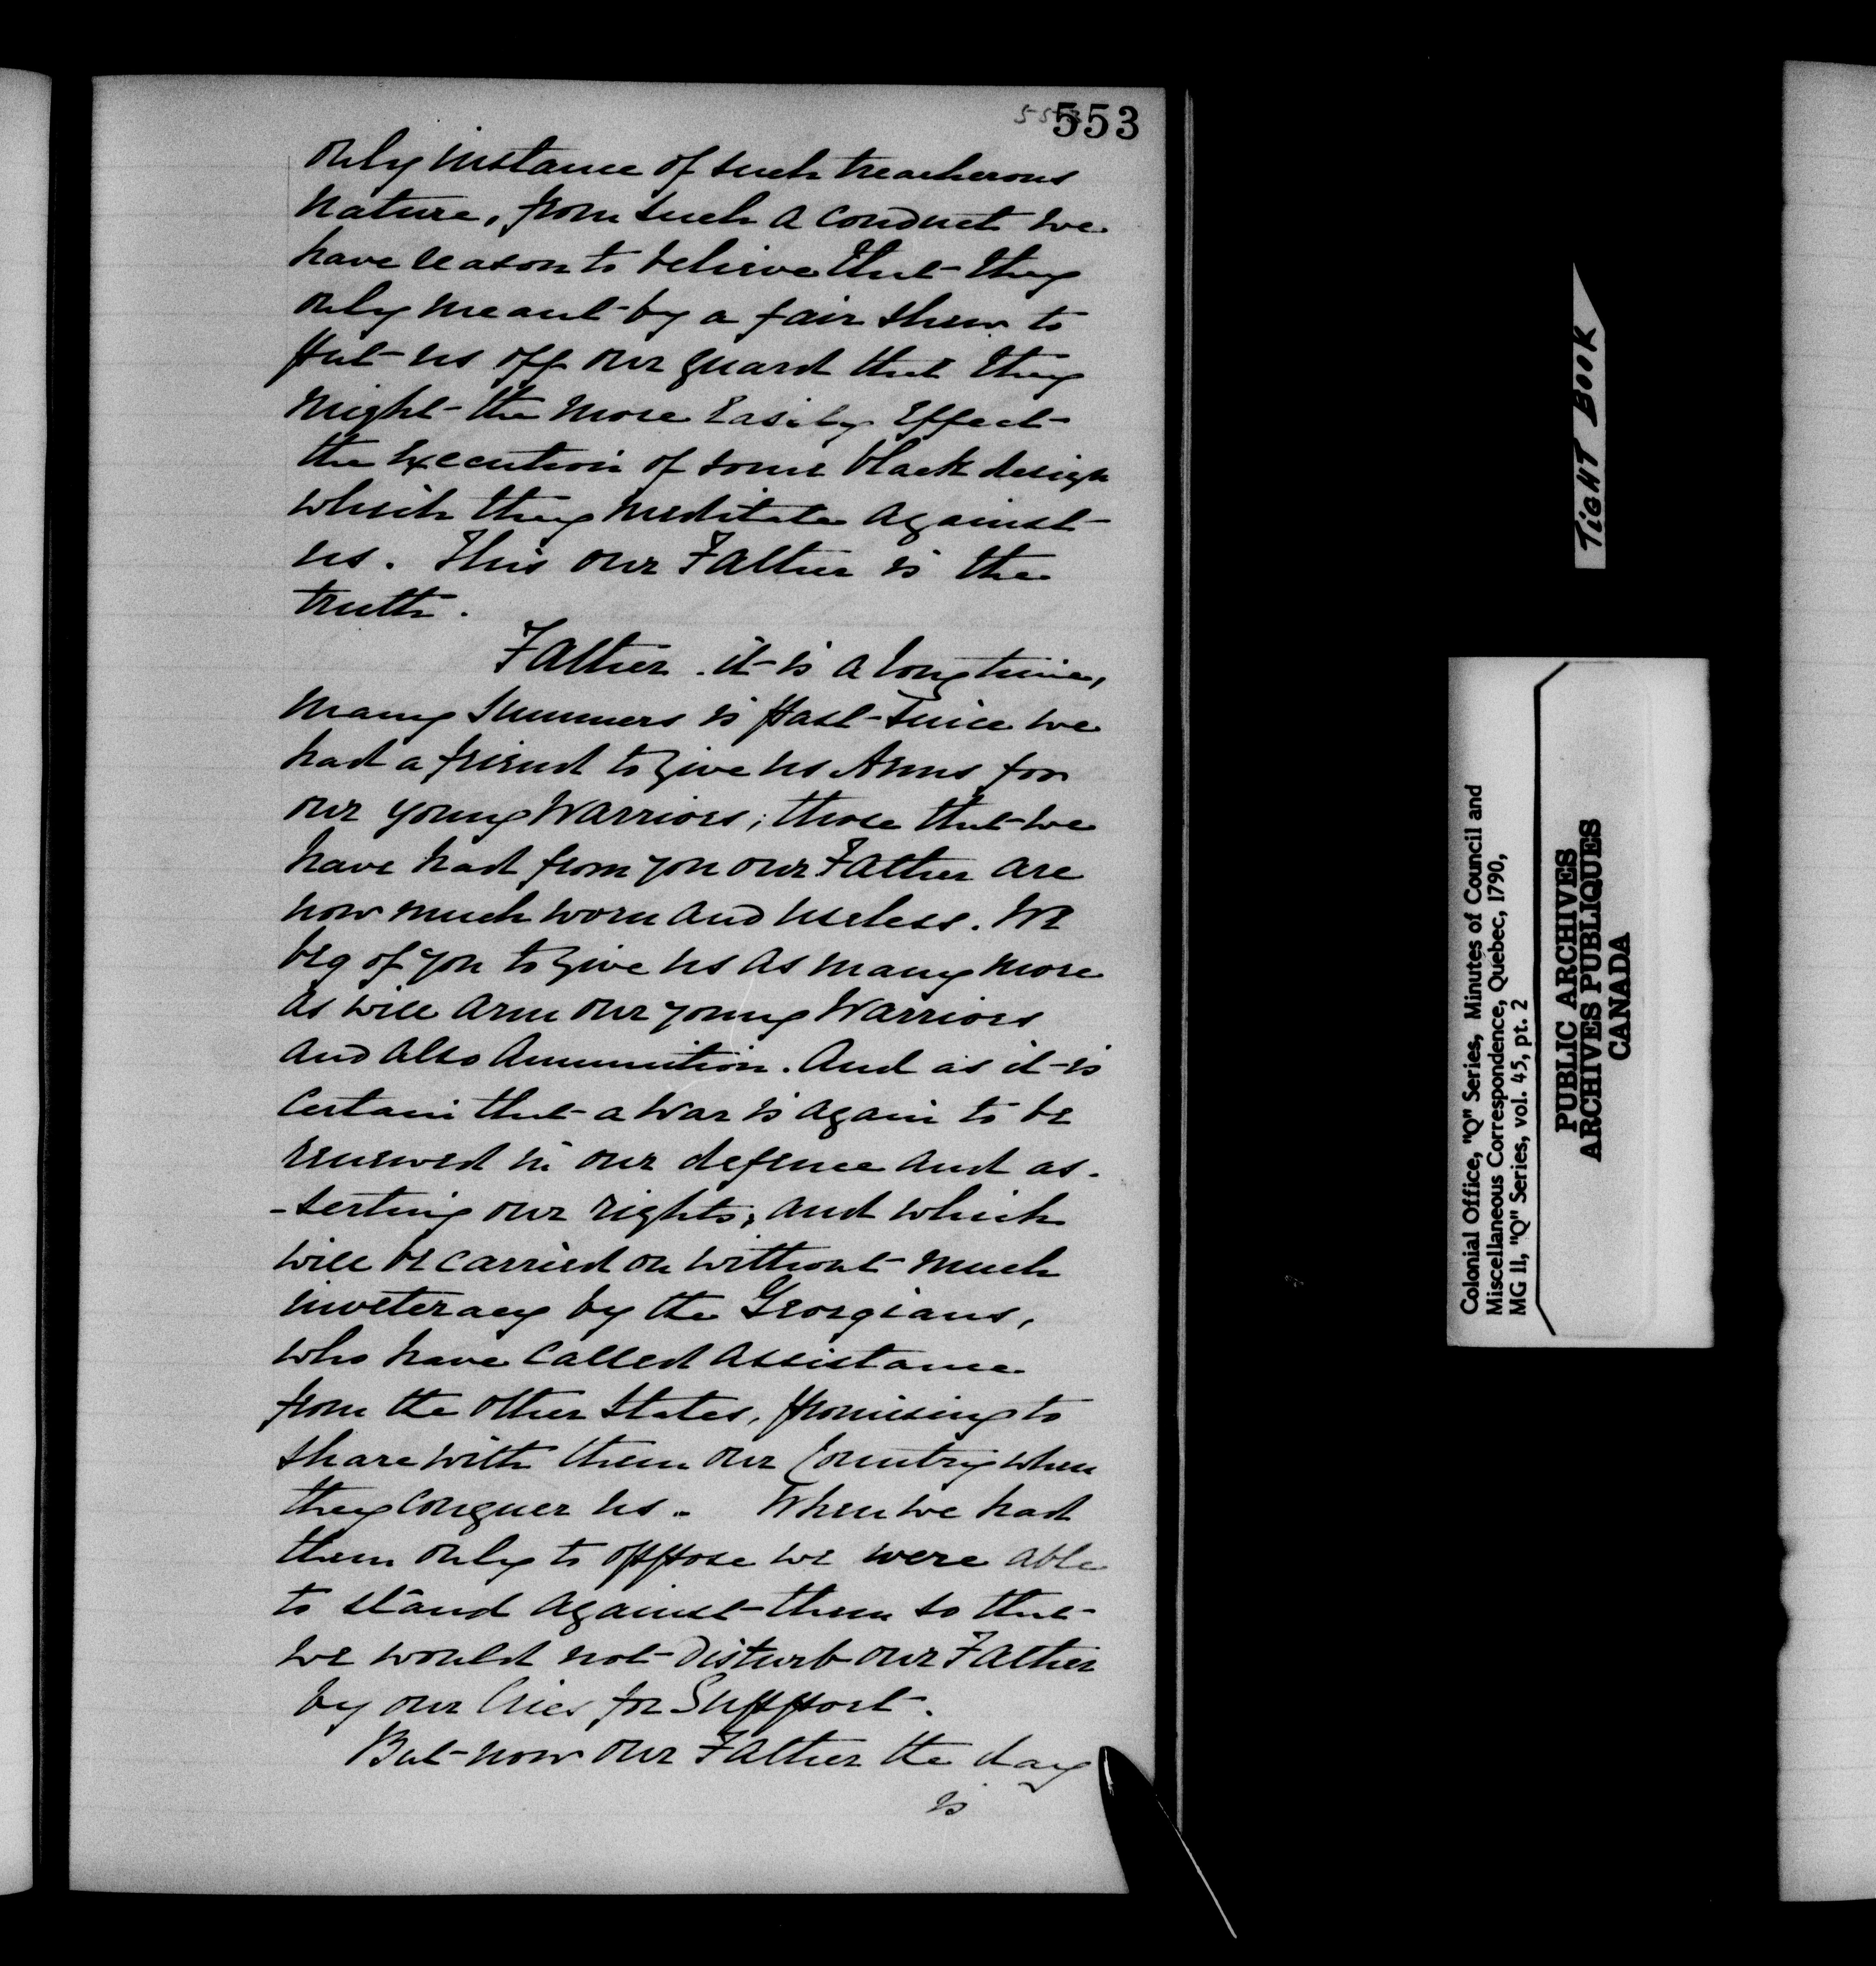 553
only instance of such treacherous
nature, from such a conduct we
have reason to believe that they
only meant by a fair shew to
put us off our guard that they
might the more easily Effect
the Execution of some black design
which they meditate against
us. This our Father is the
truth.
Father. it is a long time,
many summers is past since we
had a friend to give us Arms for
our young Warriors; those that we
have had from you our Father are
now much worn and useless. We
beg of you to give us as many more
as will arm our young Warriors
and also Ammunition. And as it is
certain that a war is again to be
renewed in our defence and as-
-serting our rights, and which
will be carried on without much
inveteracy by the Georgians,
who have called assistance
from the other States, promising to
share with them our Country when
they conquer us. When we had
them only to oppose we were able
to stand against them so that
we would not disturb our Father
by our Cries for Support.
But now our Father the day
is
TIGHT BOOK
Colonial Office, "Q" Series, Minutes of Council and
Miscellaneous Correspondence, Quebec, 1790,
MG 11, "Q" Series, vol. 45, pt. 2
PUBLIC ARCHIVES
ARCHIVES PUBLIQUES
CANADA